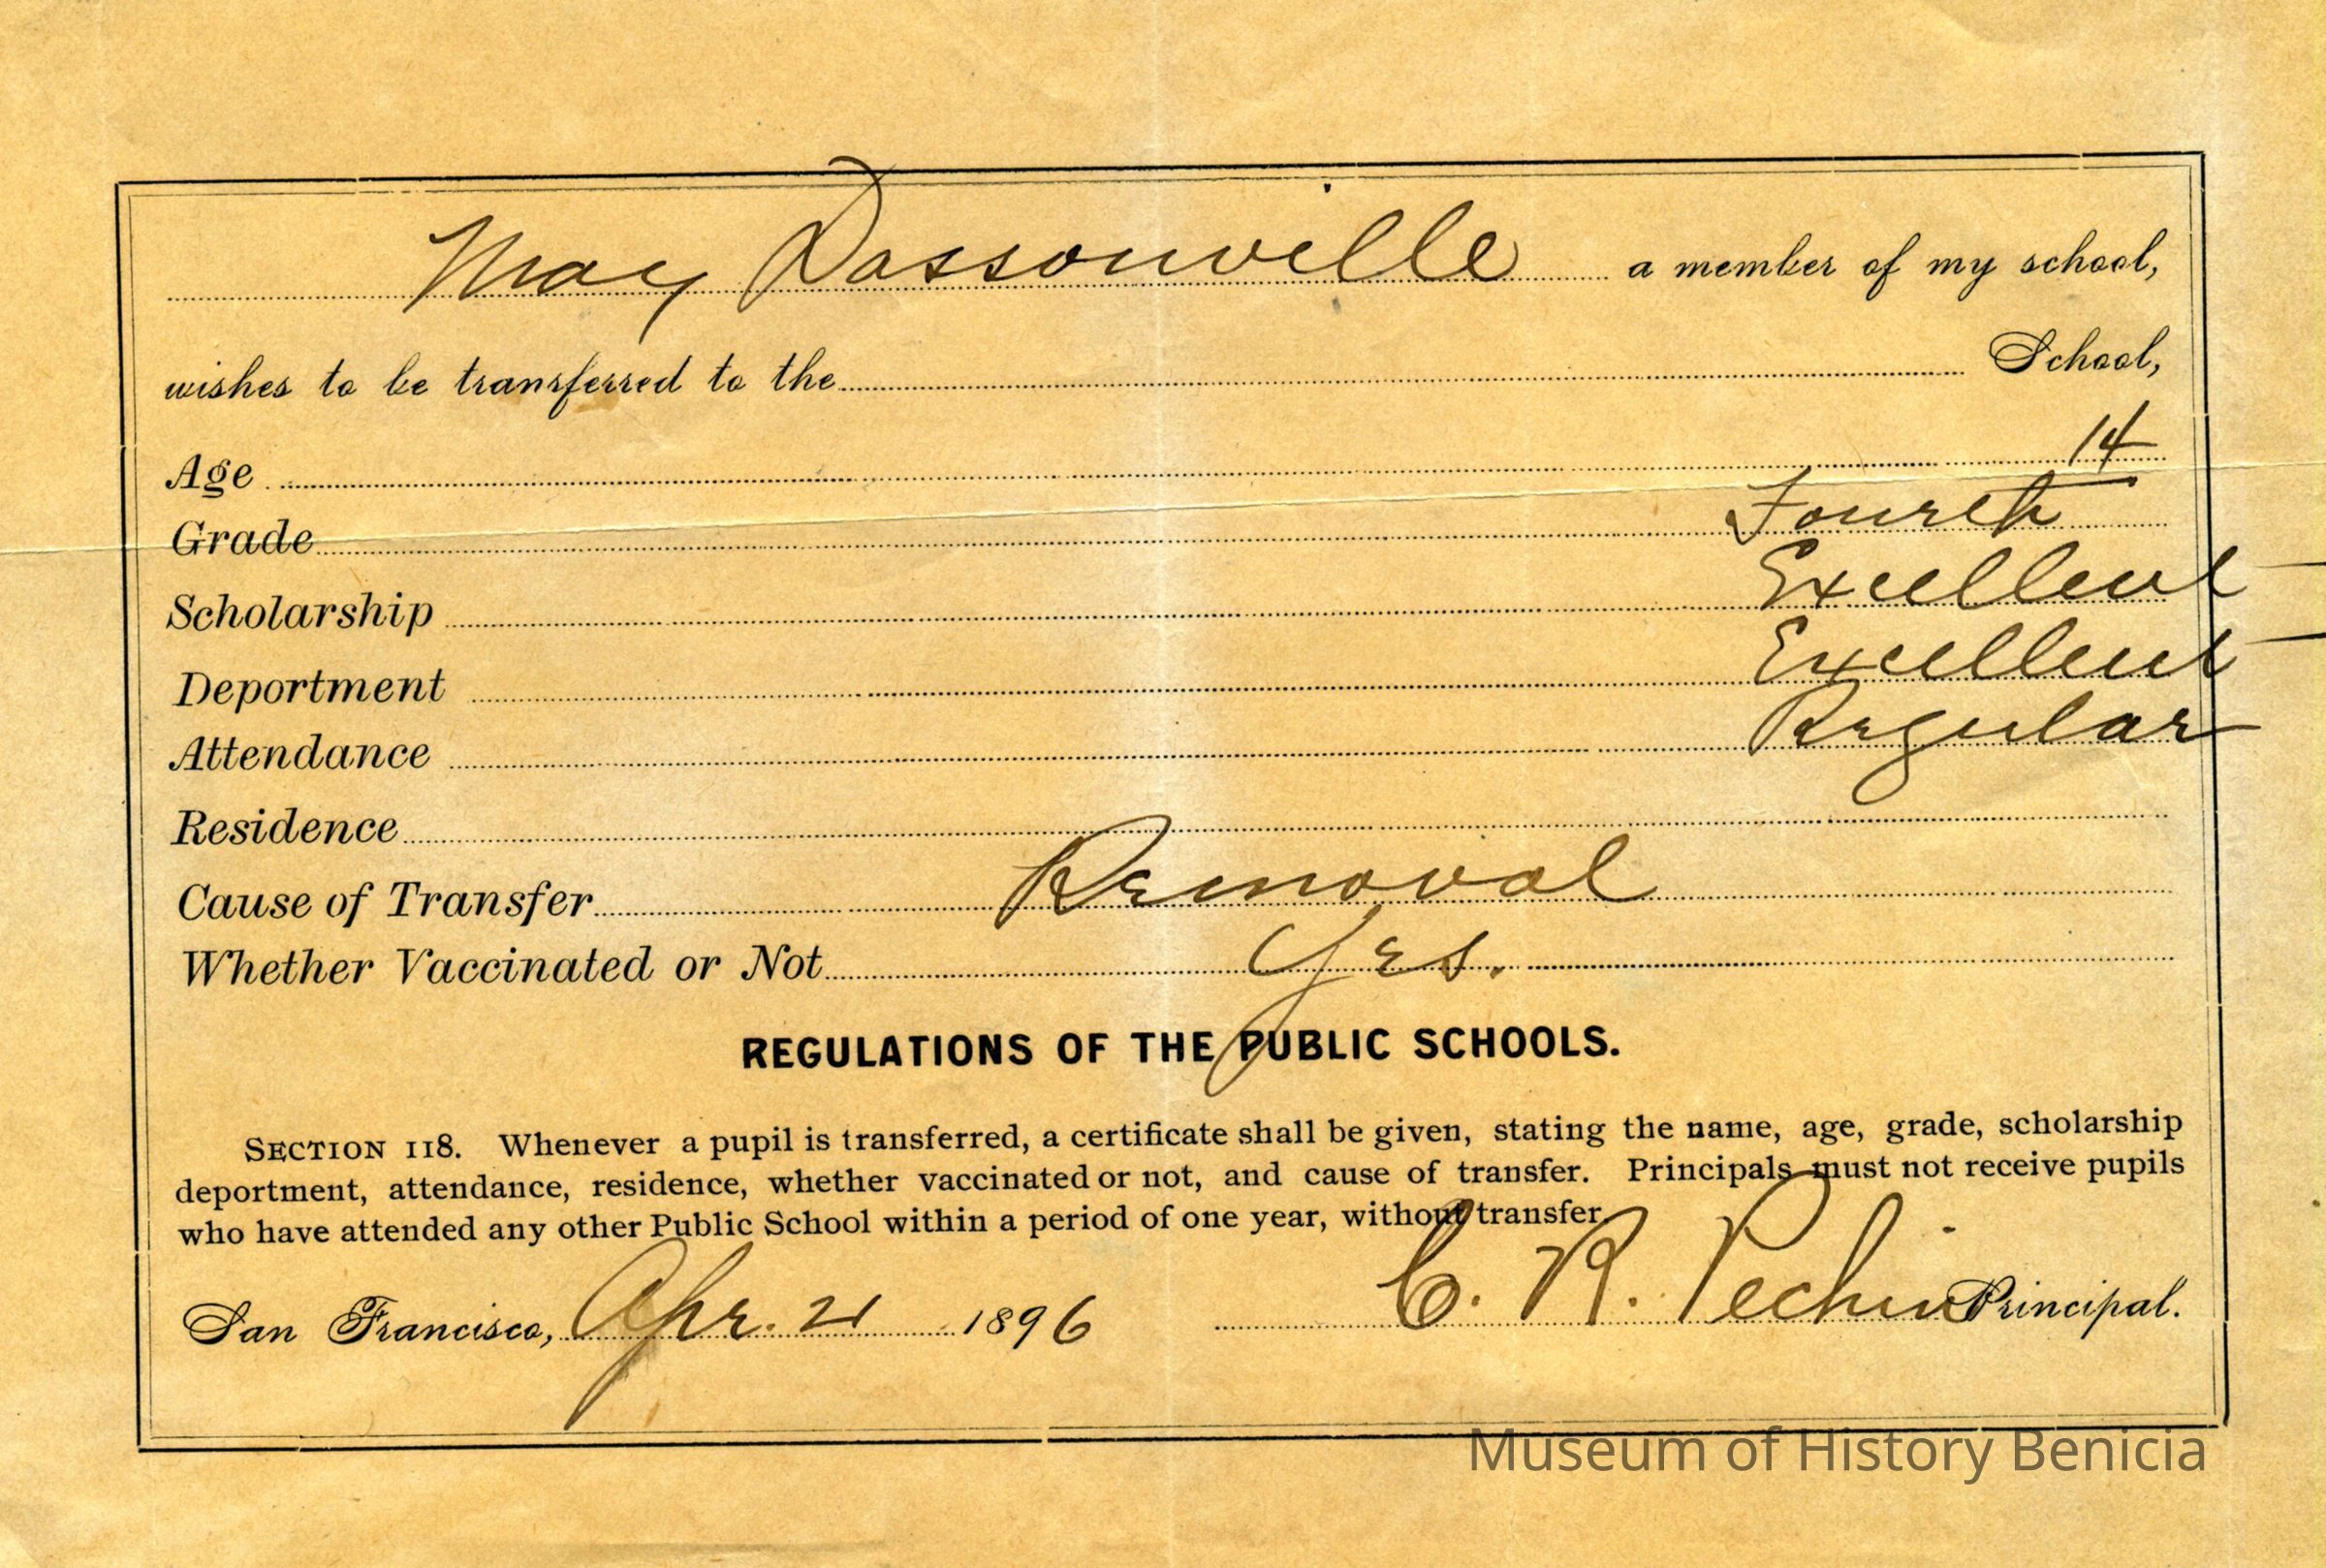 May Dassonville a member of my school,
wishes to be transferred to the School,
Age 14
Grade Fourth
Scholarship Excellent
Deportment Excellent
Attendance Regular
Residence
Cause of Transfer Removal
Whether Vaccinated or Not Yes.
REGULATIONS OF THE PUBLIC SCHOOLS.
SECTION 118. Whenever a pupil is transferred, a certificate shall be given, stating the name, age, grade, scholarship
deportment, attendance, residence, whether vaccinated or not, and cause of transfer. Principals must not receive pupils
who have attended any other Public School within a period of one year, without transfer.
San Francisco, Apr. 21 1896 C. R. Pechin Principal.
Museum of History Benicia